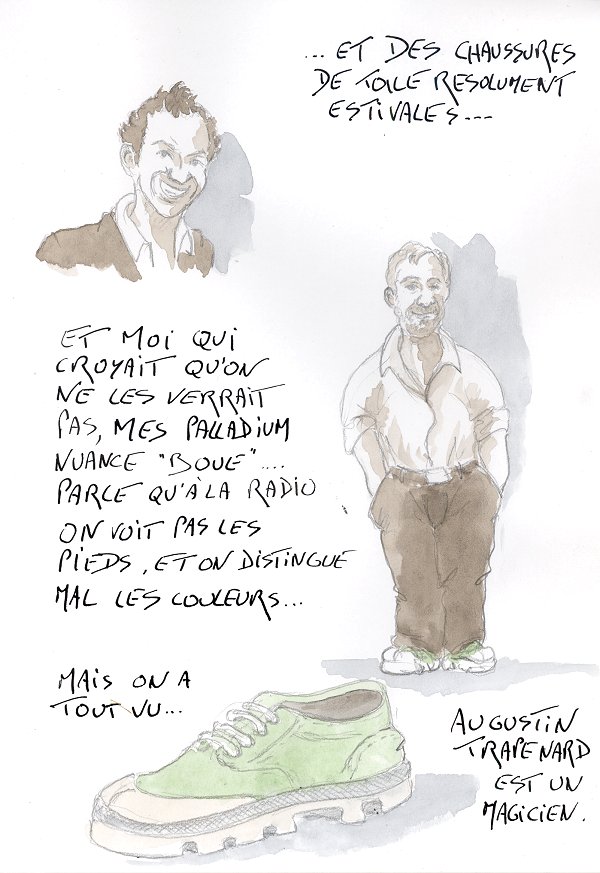 ... ET DES CHAUSSURES
DE TOILE RESOLUMENT
ESTIVALES...
ET MOI QUI
CROYAIT QU'ON
NE LES VERRAIT
PAS, MES PALLADIUM
NUANCE "BOUE"....
PARCE QU'À LA RADIO
ON VOIT PAS LES
PIEDS, ET ON DISTINGUE
MAL LES COULEURS...
MAIS ON A
TOUT VU...
AUGUSTIN
TRAPENARD
EST UN
MAGICIEN.